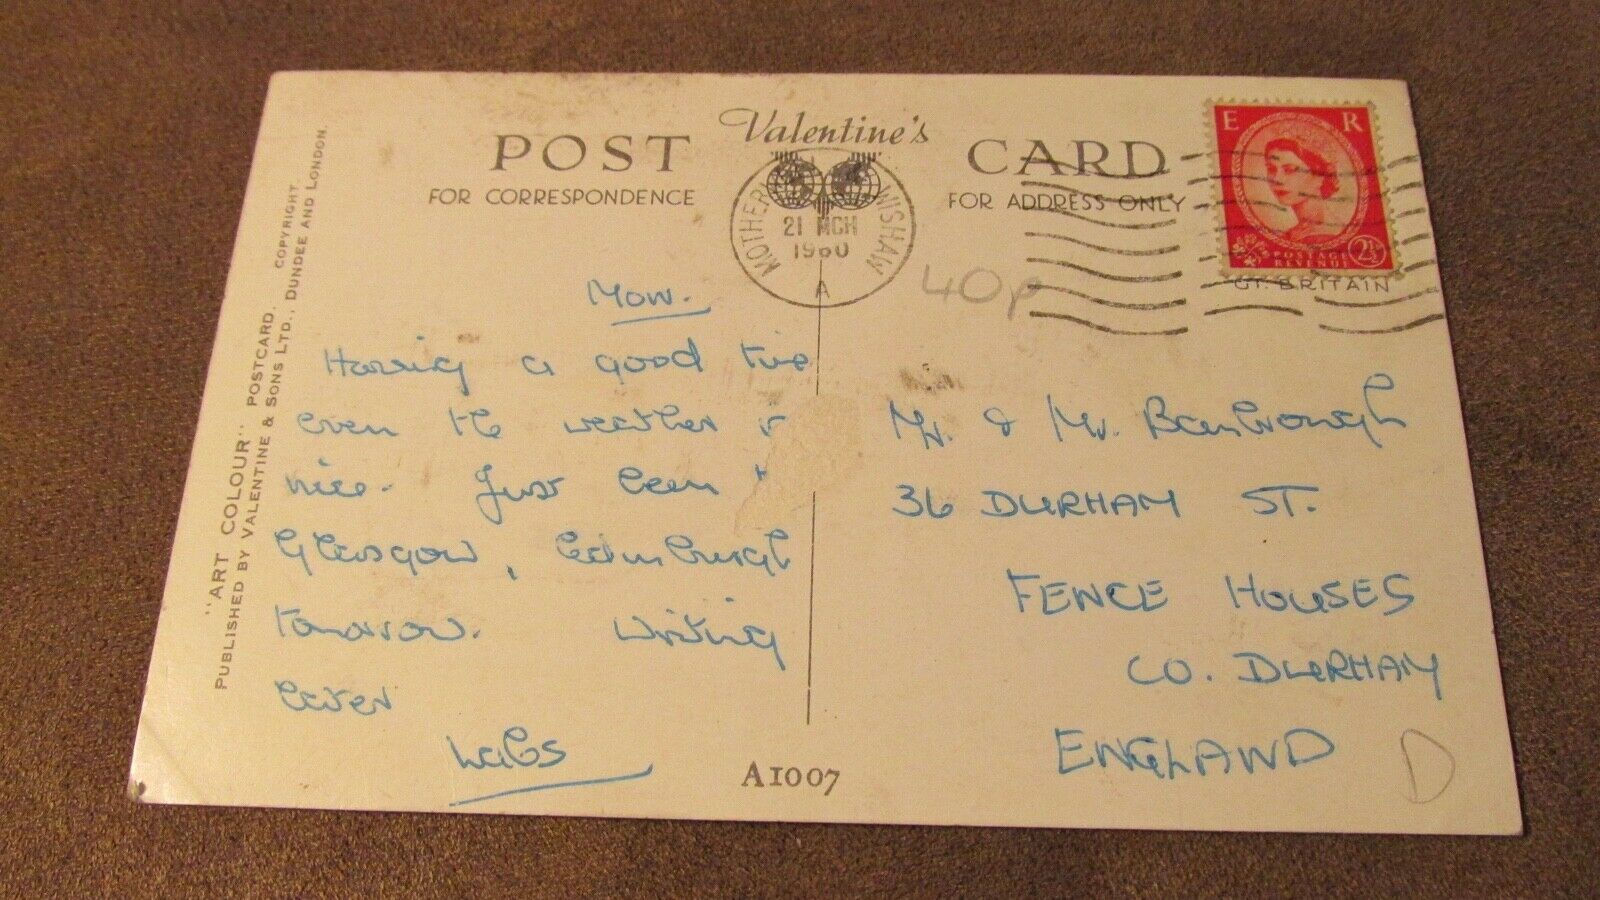 POST Valentine's CARD
FOR CORRESPONDENCE
FOR ADDRESS ONLY
MOTHERW WISHAW
21 MCH
1960
A
E R
POSTAGE
REVENUE
2½
GT. BRITAIN
40p
"ART COLOUR" POSTCARD. COPYRIGHT.
PUBLISHED BY VALENTINE & SONS LTD., DUNDEE AND LONDON.
Mon.
Having a good time
even the weather is
nice. Just been
Glasgow, Edinburgh
tomorrow. Writing
later
A1007
Mr. & Mr.
36 DURHAM ST.
FENCE HOUSES
CO. DURHAM
ENGLAND
D